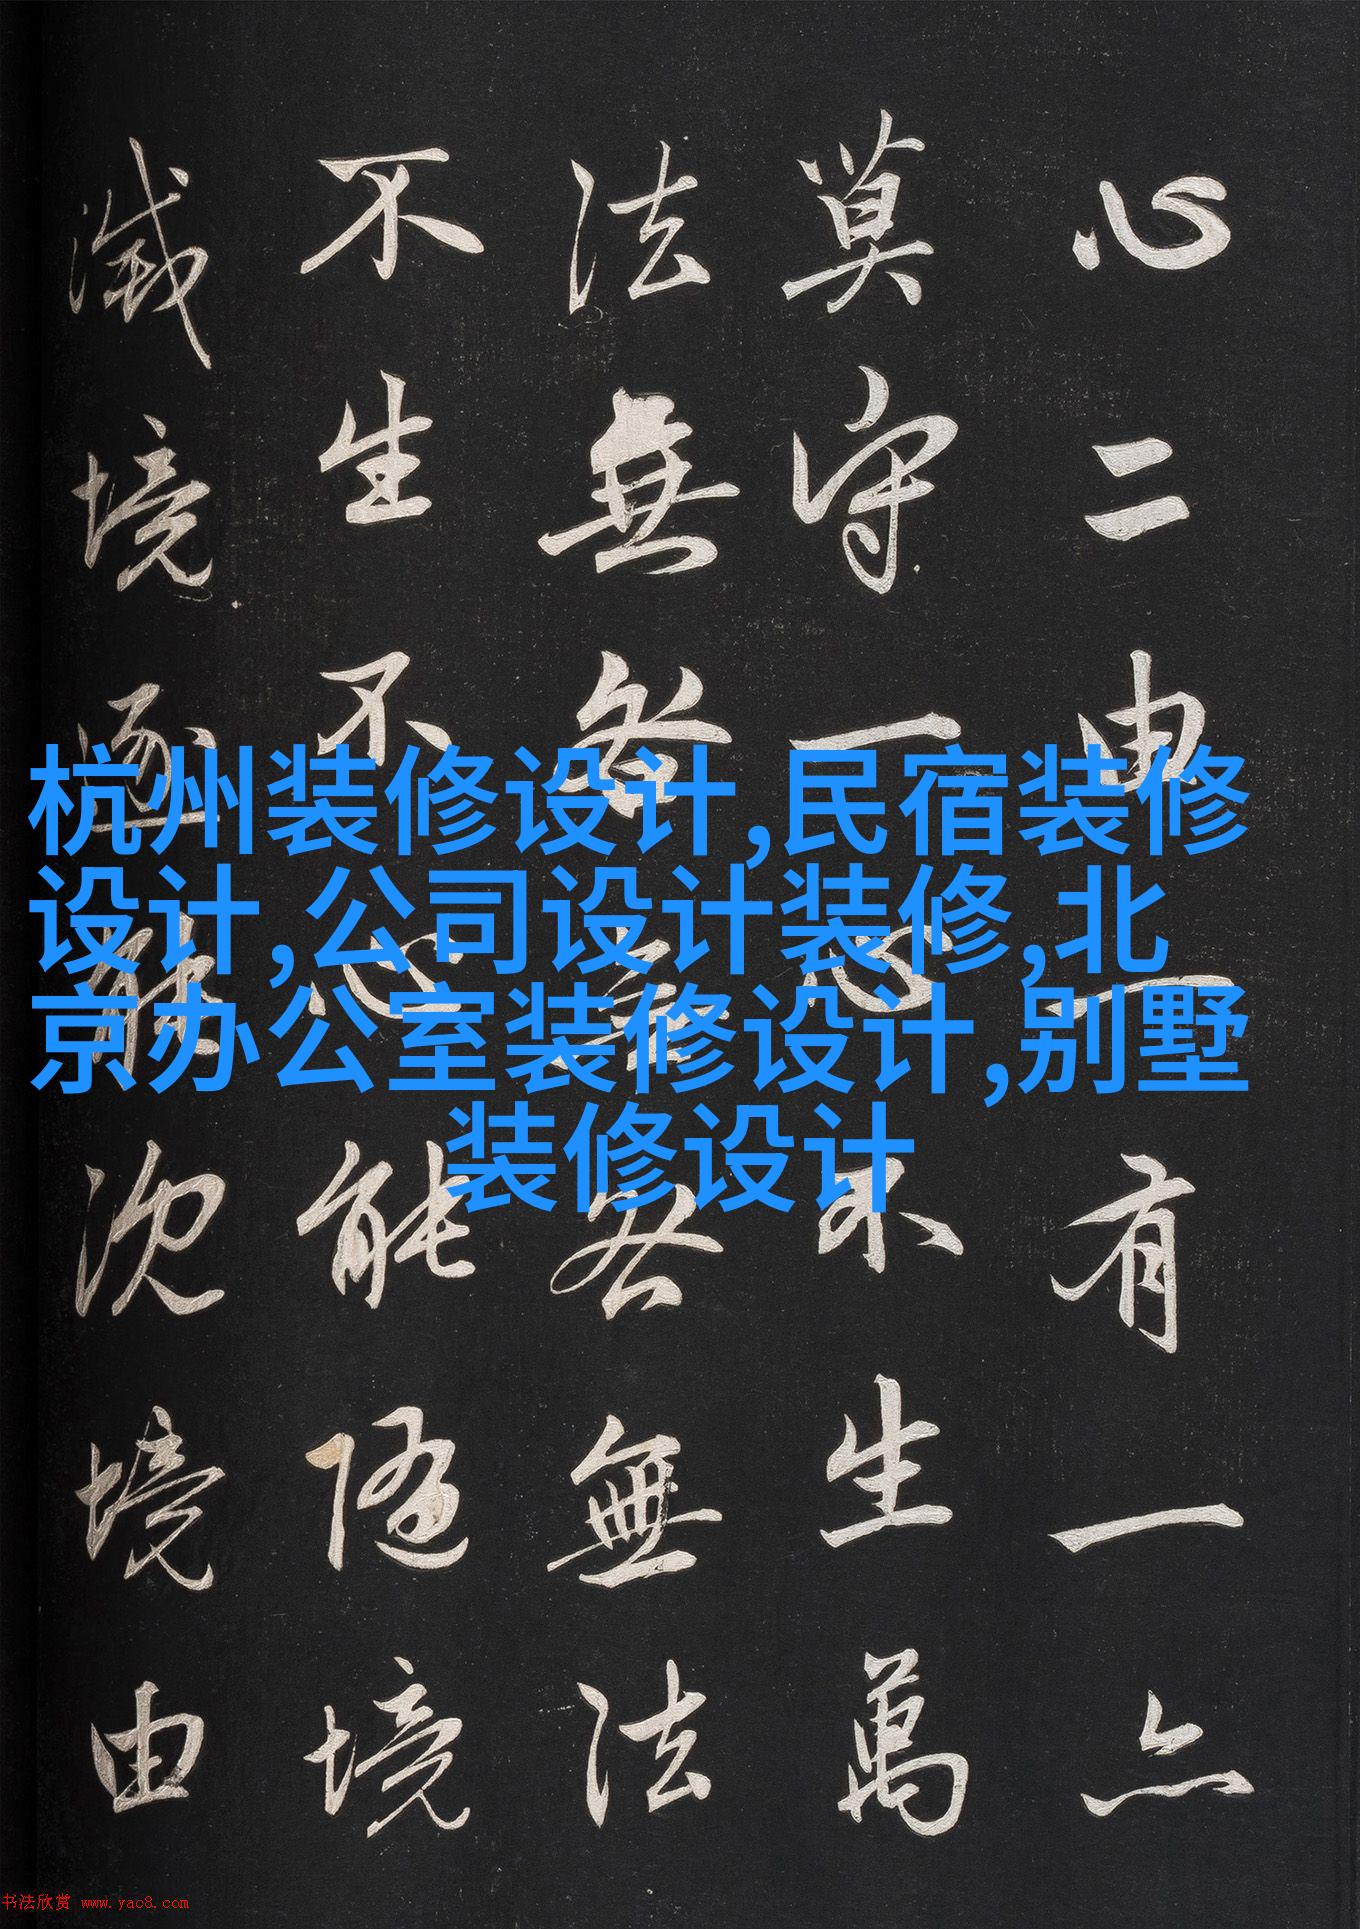 心二由一有一亦
莫守一心不生萬
法無咎無咎無法
不生不心能隨境
滅境逐能沈境由
杭州装修设计,民宿装修
设计,公司设计装修,北
京办公室装修设计,别墅
装修设计
书法欣赏 www.yac8.com